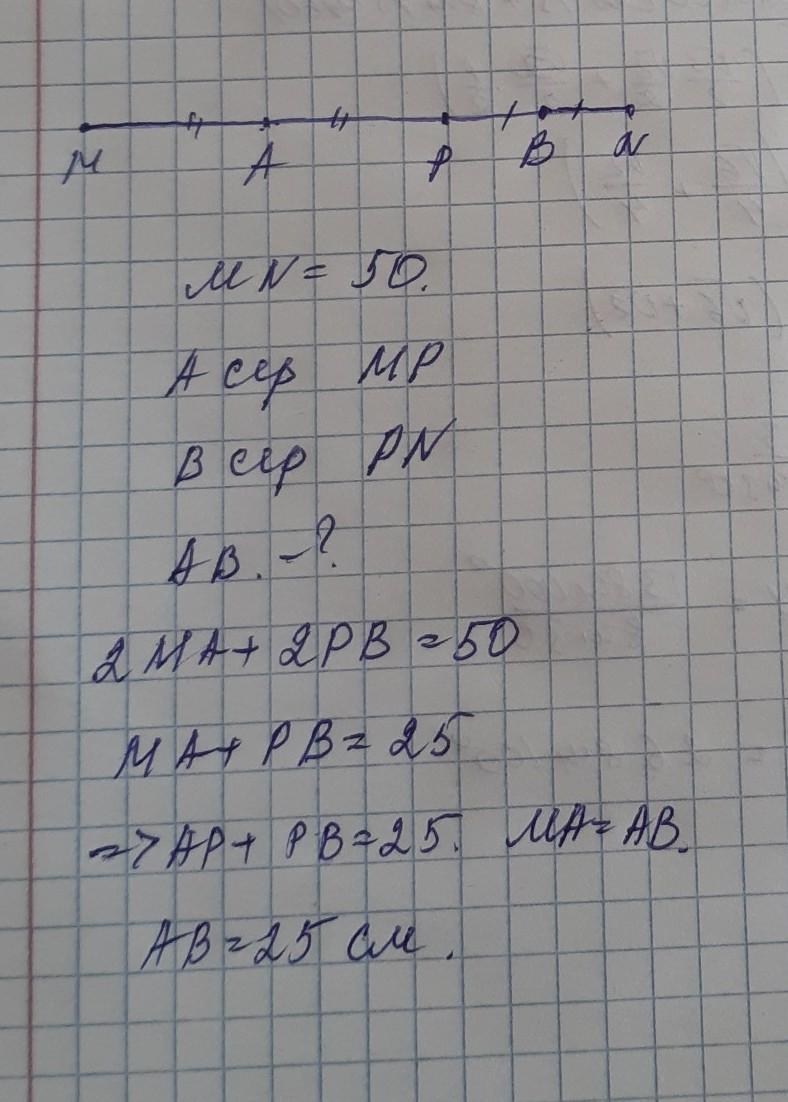 M A P B N
MN = 50.
A сер MP
B сер PN
AB. - ?
2MA + 2PB = 50
MA + PB = 25
=> AP + PB = 25. MA = AB.
AB = 25 см.